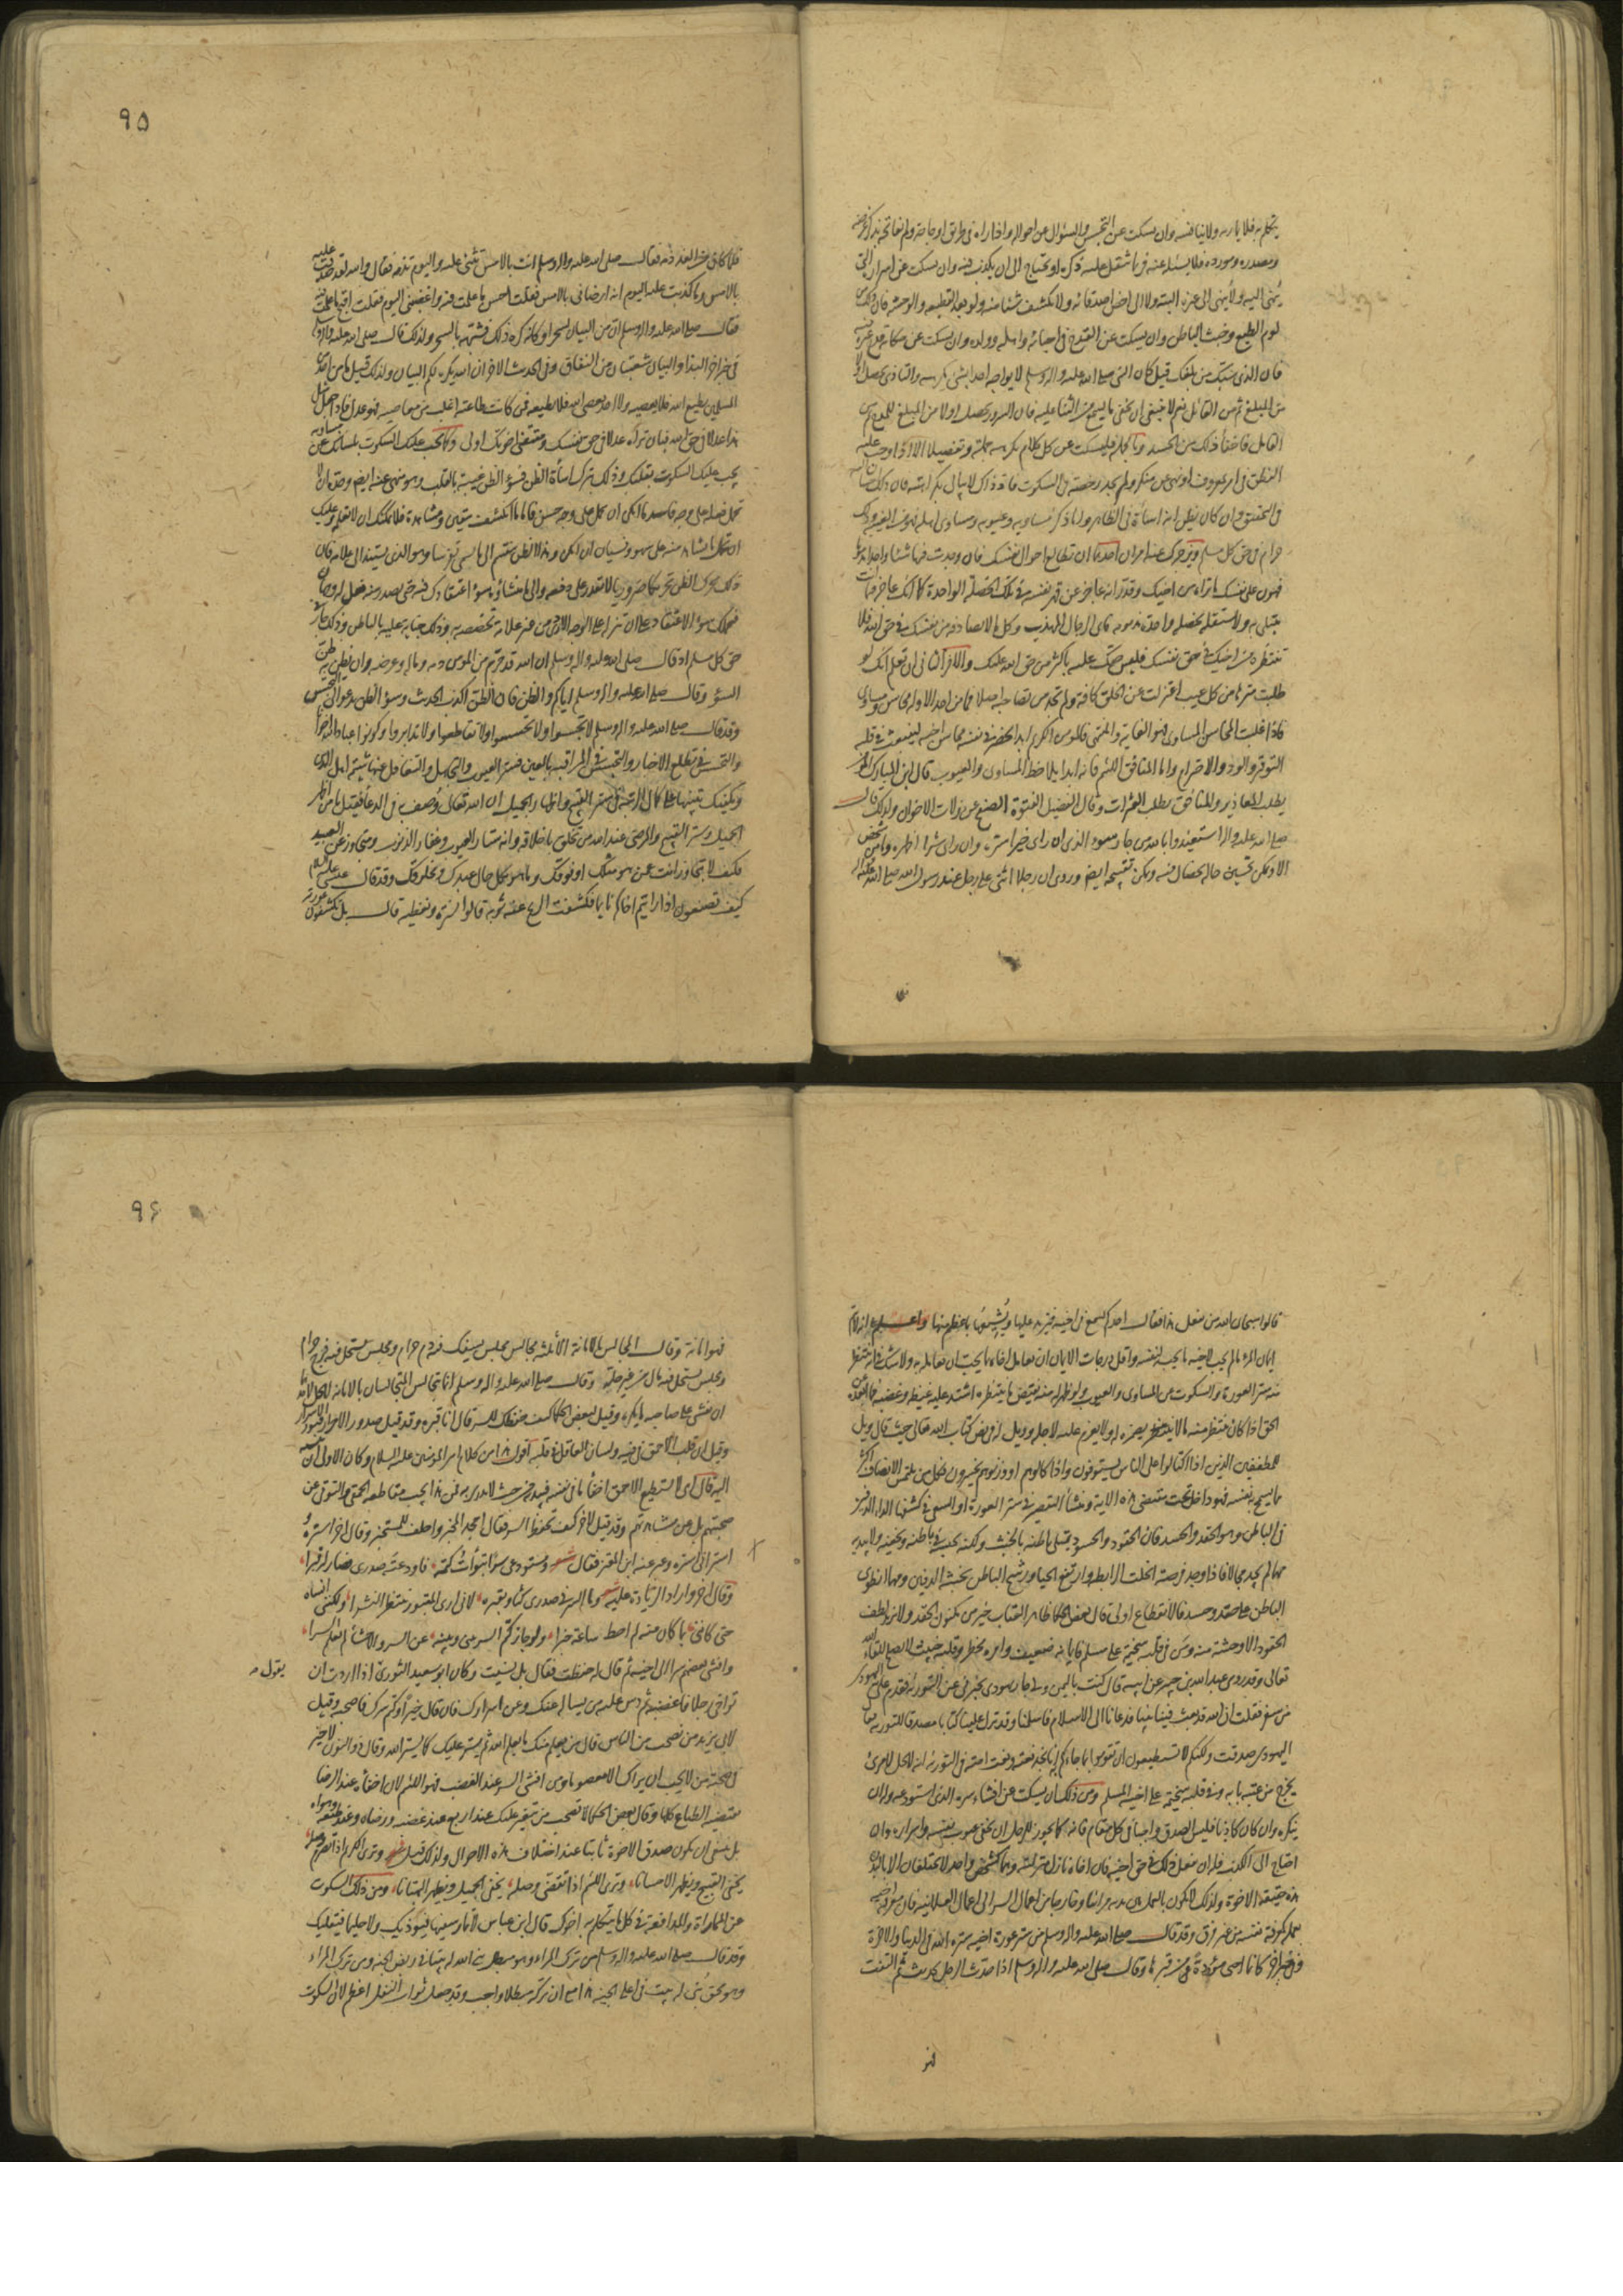 يتكلم به فلا يماريه ولا يناقشه وان يسكت عن التجسس والسؤال عن احواله واذا راه فى طريق او حاجة ولم يفاتحه بذكر غرضه
ومصدره ومورده فلا يسئله عنه فربما يثقل عليه ذكره او يحتاج الى ان يكذب فيه وان يسكت عن اسراره التى
بثها اليه ولا يبثها الى غيره البتة ولا الى اخص اصدقائه ولا يكشف شيئا منه ولو بعد القطيعة والوحشة فان ذلك من
لوم الطبع وخبث الباطن وان يسكت عن القدح فى احبائه واهله وولده وان يسكت عن حكاية قدح غيره فيه
فان الذى سبّك من بلّغك قيل كان النبى صلى الله عليه واله وسلم لا يواجه احدا بشئ يكرهه والتاذى يحصل اولا
من المبلغ ثم من القائل نعم لا ينبغى ان يخفى ما يسمع من الثناء عليه فان السرور يحصل اولا من المبلغ للمدح ثم من
القائل فاخفاء ذلك من الحسد وبالجملة فليسكت عن كل كلام يكرهه جملة وتفصيلا الا اذا وجب عليه
النطق فى امر بمعروف او نهى عن منكر ولم يجد رخصة فى السكوت فاذ ذاك لا يبالى بكراهته فان ذلك احسان اليه
فى التحقيق وان كان يظن انه اساءة فى الظاهر واما ذكر مساويه وعيوبه ومساوى اهله فهو من الغيبة وذلك
حرام فى حق كل مسلم ويزجرك عنه امران احدهما ان تطالع احوال نفسك فان وجدت فيها شيئا واحدا مذموما
فهون على نفسك ما تراه من اخيك وقدّر انه عاجز عن قهر نفسه فى تلك الخصلة الواحدة كما انك عاجز عما انت
مبتلى به ولا تستثقله بخصلة واحدة مذمومة فاى الرجال المهذب وكل ما لا تصادفه من نفسك فى حق الله فلا
تنتظره من اخيك فى حق نفسك فليس حقك عليه باكثر من حق الله عليك والامر الثانى ان تعلم انك لو
طلبت منزها من كل عيب اعتزلت عن الخلق كافة ولم تجد من تصاحبه اصلا فما من احد الا وله محاسن ومساوى
فاذا غلبت المحاسن المساوى فهو الغاية والمنتهى فالمومن الكريم ابدا يحضر فى نفسه محاسن اخيه لينبعث فى قلبه
التوقير والود والاحترام واما المنافق اللئيم فانه ابدا يلاحظ المساوى والعيوب قال ابن المبارك المؤمن
يطلب المعاذير والمنافق يطلب العثرات وقال الفضيل الفتوة الصفح عن زلات الاخوان ولذلك قال
صلى الله عليه واله استعيذوا بالله من جار السوء الذى ان راى خيرا ستره وان راى شرا اظهره وما من شخص
الا ويمكن تحسين حاله بخصال فيه ويمكن تقبيحه ايضا وروى ان رجلا اثنى على رجل عند رسول الله صلى الله عليه واله
٩٥
فلما كان من الغد ذمه فقال صلى الله عليه واله وسلم انت بالامس تثنى عليه واليوم تذمه فقال والله لقد صدقت عليه
بالامس وما كذبت عليه اليوم انه ارضانى بالامس فقلت احسن ما علمت فيه واغضبنى اليوم فقلت اقبح ما علمت فيه
فقال صلى الله عليه واله وسلم ان من البيان لسحرا وكانه كره ذلك فشبهه بالسحر ولذلك قال صلى الله عليه واله وسلم
فى خبر اخر البذاء والبيان شعبتان من النفاق وفى الحديث الاخر ان الله يكره لكم البيان ولذلك قيل ما من احد من
المسلمين يطيع الله فلا يعصيه ولا احد يعصى الله فلا يطيعه فمن كانت طاعته اغلب من معاصيه فهو عدل فاذا جعل مثل
هذا عدلا فى حق الله فبان تراه عدلا فى حق نفسك ومقتضى اخوتك اولى وكما يجب عليك السكوت بلسانك عن مساويه
يجب عليك السكوت بقلبك وذلك بترك اساءة الظن فسوء الظن غيبة بالقلب وهو منهى عنه ايضا وحده ان لا
تحمل فعله على وجه فاسد ما امكن ان تحمل على وجه حسن فاما ما انكشف بيقين ومشاهدة فلا يمكنك ان لا تعلمه وعليك
ان تحمل ما تشاهد منه على سهو ونسيان ان امكن وهذا الظن ينقسم الى ما يسمى تفرسا وهو الذى يستند الى علامة فان
ذلك يحرك الظن تحريكا ضروريا لا تقدر على دفعه والى ما منشاؤه سوء اعتقادك فيه حتى يصدر منه فعل له وجهان
فيحملك سوء الاعتقاد على ان تنزله على الوجه الاردى من غير علامة تخصصه به وذلك جناية عليه بالباطن وذلك حرام فى
حق كل مسلم اذ قال صلى الله عليه واله وسلم ان الله قد حرم من المومن دمه وماله وعرضه وان يظن به ظن
السوء وقال صلى الله عليه واله وسلم اياكم والظن فان الظن اكذب الحديث وسوء الظن يدعو الى التجسس
وقد قال صلى الله عليه واله وسلم لا تجسسوا ولا تحسسوا ولا تقاطعوا ولا تدابروا وكونوا عباد الله اخوانا
والتجسس فى تطلع الاخبار والتحسس فى المراقبة بالعين فستر العيوب والتجاهل والتغافل عنها شيمة اهل الدين
ويكفيك تنبيها على كمال الرتبة فى ستر القبيح واظهار الجميل ان الله تعالى وُصف فى الدعاء فقيل يا من اظهر
الجميل وستر القبيح والمرضى عند الله من تخلق باخلاقه وانه ستار العيوب وغفار الذنوب ومتجاوز عن العبيد
فكيف لا تتجاوز انت عمن هو مثلك او فوقك وما هو بكل حال عبدك ولا مخلوقك وقد قال عيسى عليه السلام
كيف تصنعون اذا رايتم اخاكم نائما فكشفت الريح عنه ثوبه قالوا نستره ونغطيه قال بل تكشفون عورته
قالوا سبحان الله من يفعل هذا فقال احدكم يسمع فى اخيه فيزيد عليها ويشيعها باعظم منها واعلم انه لا يتم
ايمان المرء ما لم يحب لاخيه ما يحب لنفسه واقل درجات الايمان ان تعامل اخاه بما يحب ان يعامله به ولا شك فى انه ينتظر
منه ستر العورة والسكوت عن المساوى والعيوب ولو ظهر له منه نقيض ما ينتظره اشتد عليه غيظه وغضبه فما ابعده عن
الحق اذا كان ينتظر منه ما لا يضمره له ولا يعزم عليه لاجله وويل له فى نص كتاب الله تعالى حيث قال ويل
للمطففين الذين اذا اكتالوا على الناس يستوفون واذا كالوهم او وزنوهم يخسرون فكل من يلتمس الانصاف اكثر
مما يسمح به نفسه فهو داخل تحت مقتضى هذه الاية ومنشأ التقصير فى ستر العورة او السعى فى كشفها الداء الدفين
فى الباطن وهو الحقد والحسد فان الحقود والحسود يمتلى باطنه بالخبث ولكنه يحبسه فى باطنه ويخفيه ولا يبديه
مهما لم يجد مجالا فاذا وجد فرصة انحلت الرابطة وارتفع الحيا ورشح الباطن بخبثه الدفين ومهما انطوى
الباطن على حقد وحسد فالانقطاع اولى قال بعض الحكما ظاهر العتاب خير من مكنون الحقد ولا يزيد لطف
الحقود الا وحشة منه ومن فى قلبه سخيمة على مسلم فايمانه ضعيف وامره مخطر وقلبه خبيث لا يصلح للقاء الله
تعالى وقد روى عبد الله بن جبير عن ابيه قال كنت باليمن ولى جار يهودى يخبرنى عن التورية فقدم على اليهودى
من سفر فقلت ان الله قد بعث فينا نبيا فدعانا الى الاسلام فاسلمنا وقد نزل علينا كتابا مصدقا للتورية فقال
اليهودى صدقت ولكنكم لا تستطيعون ان تقوموا بما جاءكم به انا نجد نعته ونعت امته فى التورية انه لا يحل لامرئ
يخرج من عتبة بابه وفى قلبه سخيمة على اخيه المسلم ومن ذلك ان يسكت عن افشاء سره الذى استودعه وله ان
ينكره وان كان كاذبا فليس الصدق واجبا فى كل مقام فانه كما يجوز للرجل ان يخفى عيوب نفسه واسراره وان
احتاج الى الكذب فله ان يفعل ذلك فى حق اخيه فان اخاه نازل منزلته وهما كشخص واحد لا يختلفان الا بالبدن
هذه حقيقة الاخوة ولذلك لا يكون بالعمل بين يديه مرائيا وخارجا من اعمال السر الى اعمال العلانية فان معرفة اخيه
بعمله كمعرفة نفسه من غير فرق وقد قال صلى الله عليه واله وسلم من ستر عورة اخيه ستره الله فى الدنيا والاخرة
وفى خبر اخر كانما احيى مؤودة من قبرها وقال صلى الله عليه واله وسلم اذا حدث الرجل بحديث ثم التفت
٩٦
فهو امانة وقال المجالس بالامانة الا ثلثة مجالس مجلس يسفك فيه دم حرام ومجلس يستحل فيه فرج حرام
ومجلس يستحل فيه مال من غير حله وقال صلى الله عليه واله وسلم انما يتجالس المتجالسان بالامانة لا يحل لاحدهما
ان يفشى على صاحبه ما يكره وقيل لبعض الحكما كيف حفظك للسر قال انا قبره وقد قيل صدور الاحرار قبور الاسرار
وقيل ان قلب الاحمق فى فيه ولسان العاقل فى قلبه اقول هذا من كلام امير المومنين عليه السلام وكان الاولى ان ينسبه
اليه قال اى لا يستطيع الاحمق اخفاء ما فى نفسه فيبديه من حيث لا يدرى به فمن هذا يجب مقاطعة الحمقى والتوقى عن
صحبتهم بل عن مشاهدتهم وقد قيل لاخر كيف تحفظ السر فقال اجحد المخبر واحلف للمستخبر وقال اخر استره و
استر انى استره وعبر عنه ابن المعتز فقال شعر ومستودعى سرا تبوات كتمه فاودعته صدرى فصار له قبرا
وقال اخر واراد الزيادة عليه شعر وما السر فى صدرى كثاو بقبره لانى ارى المقبور ينتظر النشرا ولكننى انساه
حتى كاننى بما كان منه لم احط ساعة خبرا ولو جاز كتم السر بينى وبينه عن السر والاحشاء لم تعلم السرا
وافشى بعضهم سرا الى اخيه ثم قال له حفظت فقال بل نسيت وكان ابو سعيد الثورى اذا اردت ان
يقول
تواخى رجلا فاغضبه ثم دس عليه من يساله عنك وعن اسرارك فان قال خيرا وكتم سرك فاصحبه وقيل
لابى يزيد من نصحب من الناس قال من يعلم منك ما يعلم الله ثم يستر عليك كما يستر الله وقال ذو النون لا خير
فى صحبة من لا يحب ان يراك الا معصوما ومن افشى السر عند الغضب فهو اللئيم لان اخفاءه عند الرضا
يقتضيه الطباع كلها وقال بعض الحكما لا تصحب من يتغير عليك عند اربع عند غضبه ورضاه وعند طمعه وهواه
بل ينبغى ان يكون صدق الاخوة ثابتا عند اختلاف هذه الاحوال ولذلك قيل شعر وترى الكريم اذا تصرم وصله
يخفى القبيح ويظهر الاحسانا وترى اللئيم اذا تقضى وصله يخفى الجميل ويظهر البهتانا ومن ذلك السكوت
عن المماراة والمدافعة فى كل ما يتكلم به اخوك قال ابن عباس لا تمار سفيها فيوذيك ولا حليما فيقليك
وقد قال صلى الله عليه واله وسلم من ترك المراء وهو مبطل بنى الله له بيتا فى ربض الجنة ومن ترك المراء
وهو محق بنى له بيت فى اعلى الجنة هذا مع ان تركه مبطلا واجب وقد جعل ثواب النفل اعظم لان السكوت